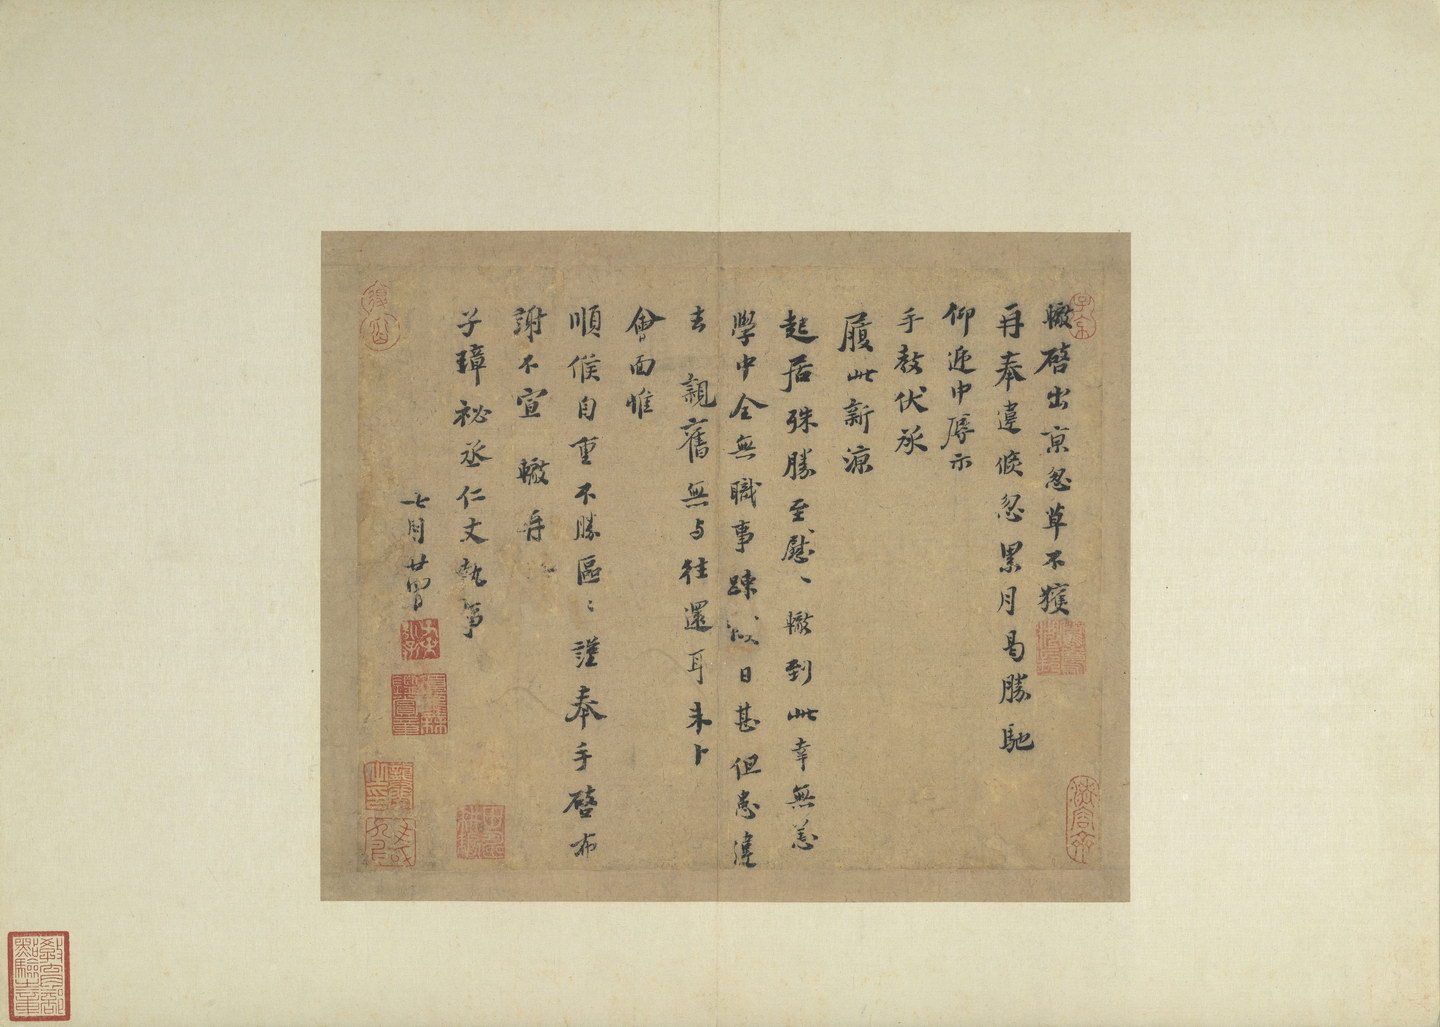 轍啓出京忽草不獲
再奉違倏忽累月曷勝馳
仰遞中辱示
手教伏承
履此新涼
起居殊勝至慰、轍到此幸無恙
學中全無職事踈以日甚但患違
去親舊無与往還耳未卜
會面惟
順候自重不勝區〻謹奉手啓布
謝不宣轍再
子璋祕丞仁丈執事
七月廿
教育部點驗之章